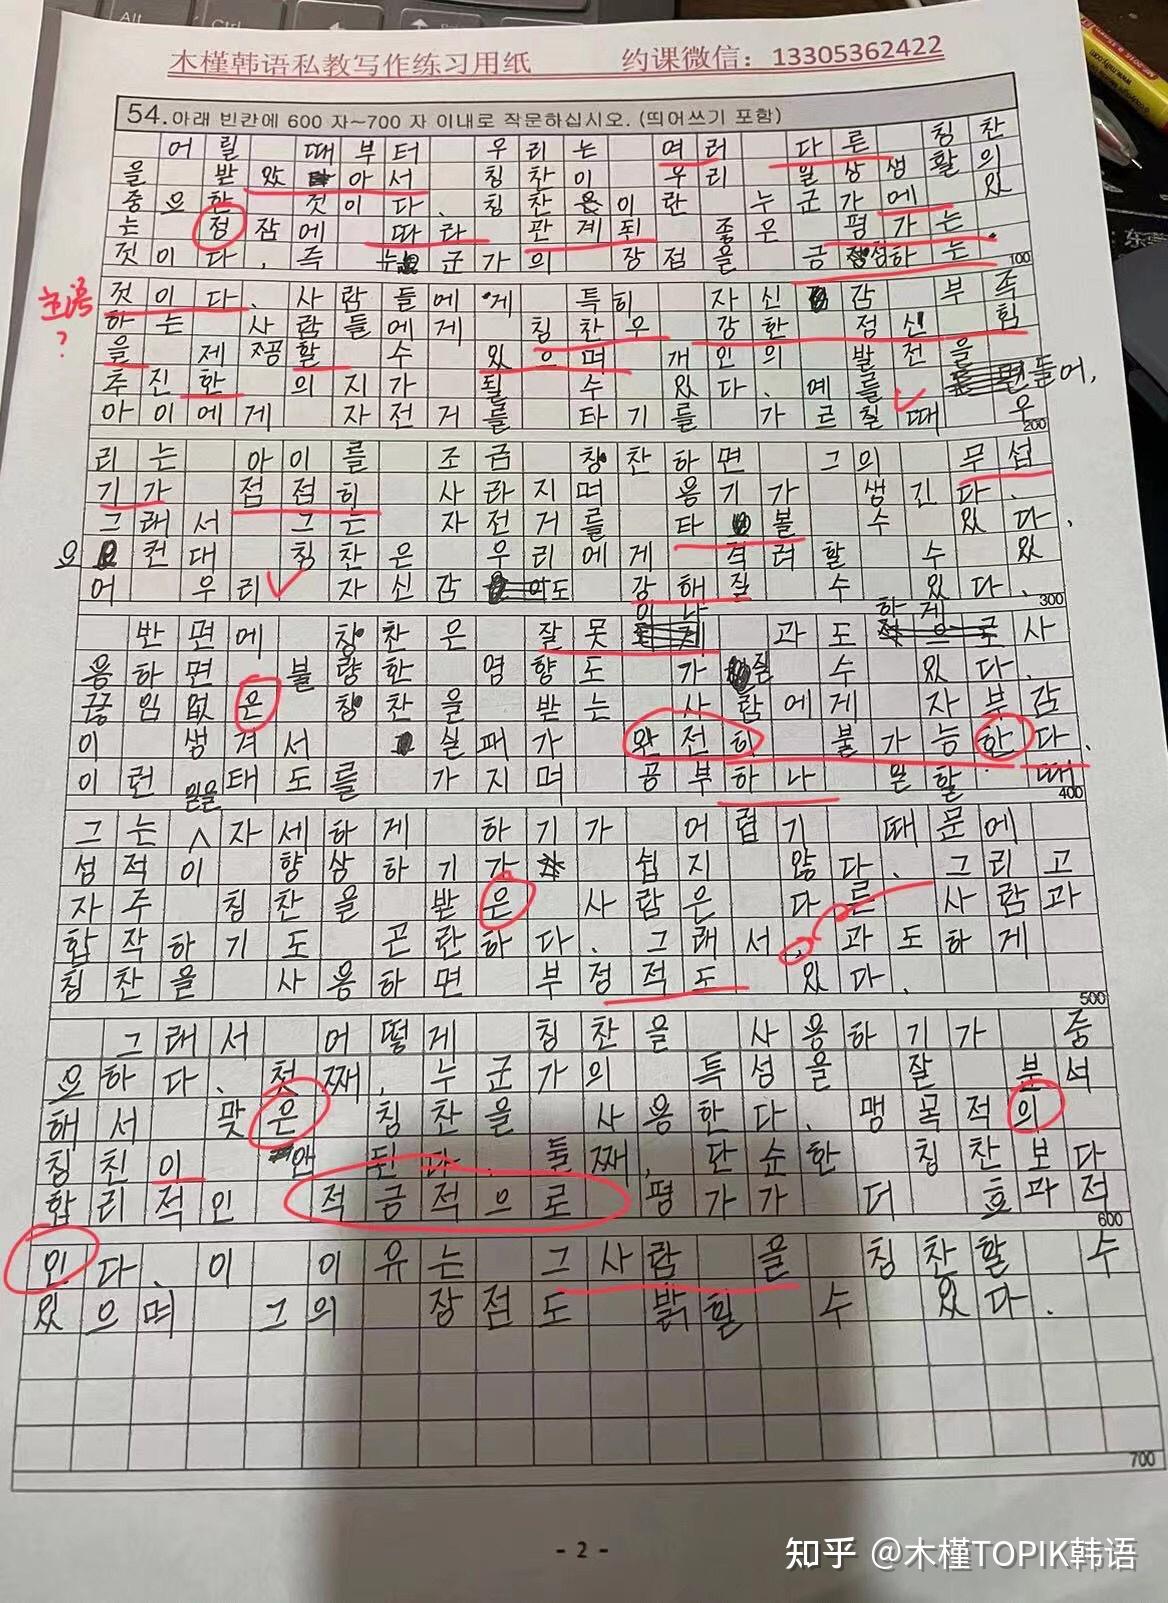 木槿韩语私教写作练习用纸 约课微信：13305362422
54.아래 빈칸에 600 자~700 자 이내로 작문하십시오. (띄어쓰기 포함)
어릴 때부터 우리는 여러 다른 칭찬
을 받았아서 칭찬이 우리 일상생활의
중요한 것이다. 칭찬이란 누군가에 있
는 정잠에 따라 판계된 좋은 평가는
것이다. 즉 누군가의 장점을 긍정하는
100
主语
?
것이다. 사람들에게 특히 자신감 부족
하는 사람들에게 칭찬우 강한 정신 힘
을 제공할 수 있으며 개인의 발전을
추진한 의지가 될 수 있다. 예를 들어,
아이에게 자전거를 타기를 가르칠때 우
200
리는 아이를 조금 칭찬하면 그의 무섭
기가 점점히 사라지며 용기가 생긴다.
그래서 그는 자전거를 타볼 수 있다.
요컨대 칭찬은 우리에게 격려할 수 있
어 우리 자신감도 강해질 수 있다.
300
반면에 칭찬은 잘못이나 과도하게 사
용하면 불량한 영향도 가질 수 있다.
끊임없은 칭찬을 받는 사람에게 자부감
이 생겨서 실패가 완전히 불가능한다.
이런 태도를 가지며 공부하나 일할 때
400
그는 일을 자세하게 하기가 어렵기 때문에
성적이 향상하기가 쉽지 않다. 그리고
자주 칭찬을 받은 사람은 다른 사람과
합작하기도 곤란하다. 그래서, 과도하게
칭찬을 사용하면 부정적도 있다.
500
그래서 어떻게 칭찬을 사용하기가 중
요하다. 첫째, 누군가의 특성을 잘 분석
해서 맞은 칭찬을 사용한다. 맹목적의
칭친이 안 된다. 둘째, 단순한 칭찬보다
합리적인 적금적으로 평가가 더 효과적
600
인다. 이 이유는 그사람을 칭찬할 수
있으며 그의 장점도 밝힐 수 있다.
700
- 2 -
知乎 @木槿TOPIK韩语